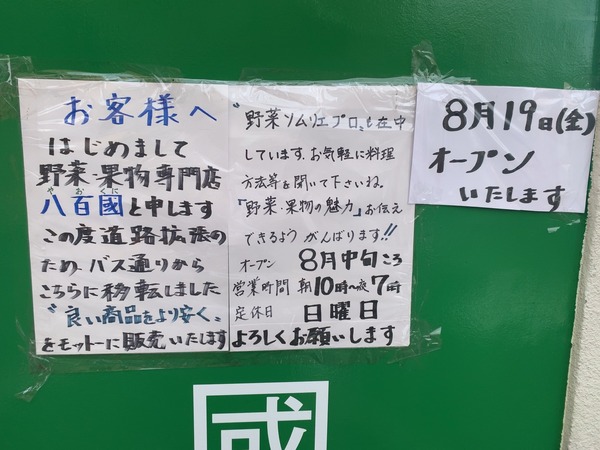 お客様へ
はじめまして
野菜・果物専門店
やおくに
八百國と申します
この度道路拡張の
ため、バス通りから
こちらに移転しました
"良い商品をより安く、
をモットーに販売いたします
"野菜ソムリエプロ〟も在中
しています。お気軽に料理
方法等を聞いて下さいね。
『野菜・果物の魅力』お伝え
できるよう がんばります!!
オープン 8月中旬ころ
営業時間 朝10時〜夜7時
定休日 日曜日
よろしくお願いします
8月19日(金)
オープン
いたします